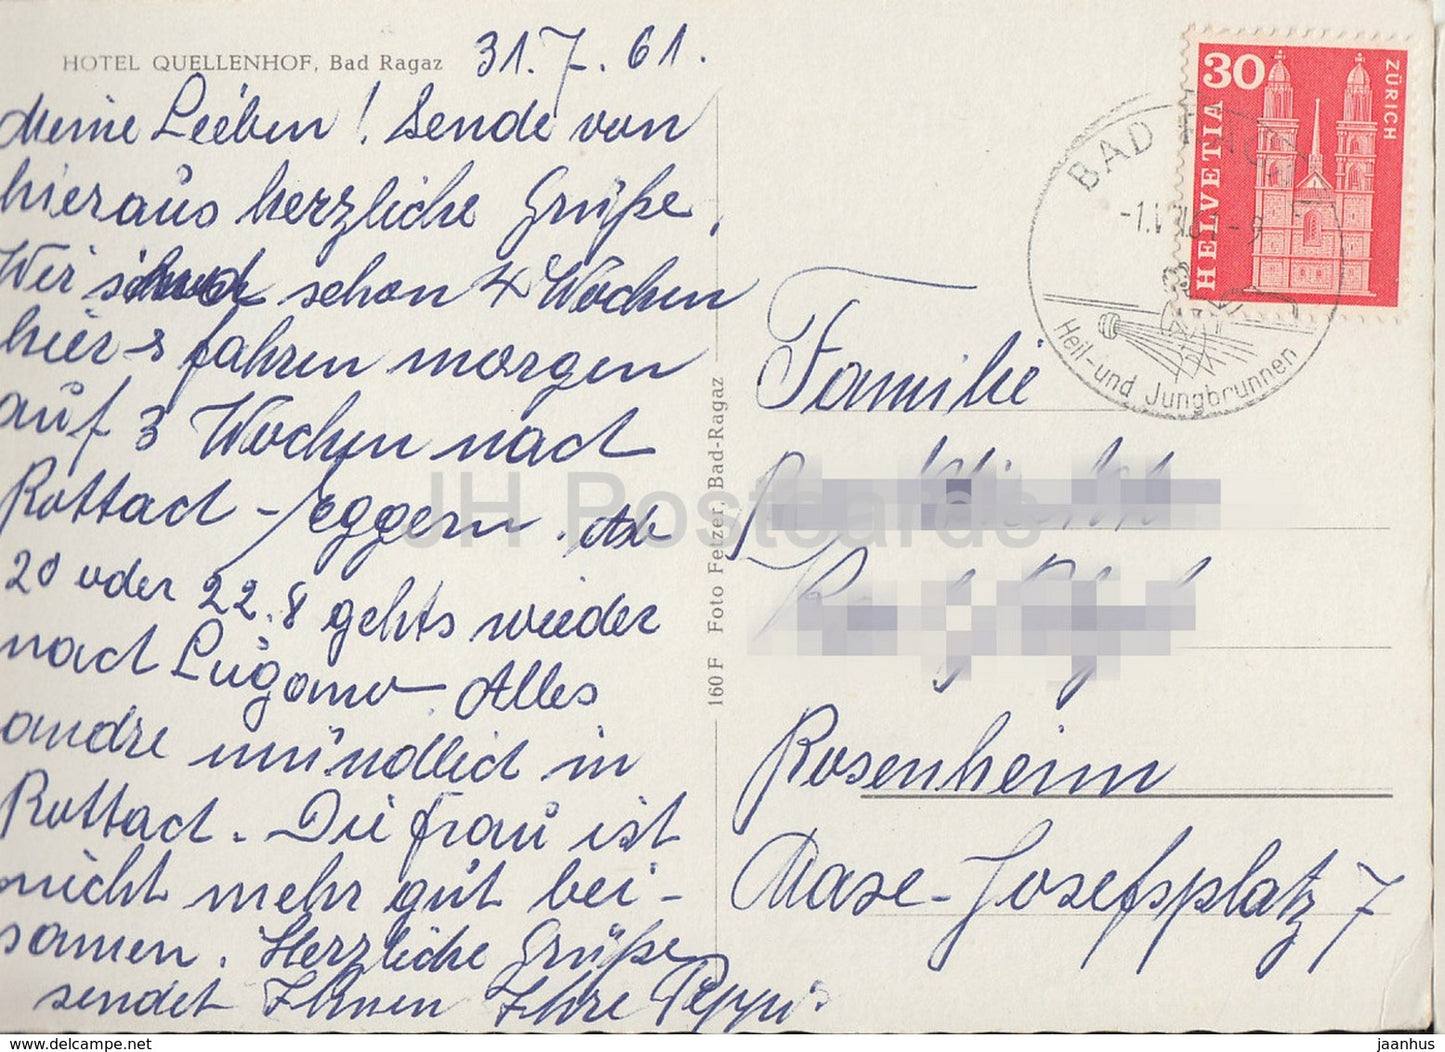 HOTEL QUELLENHOF, Bad Ragaz
31.7.61.
Meine Lieben! Sende von
hieraus herzliche Grüße,
Wir sind schon 4 Wochen
hier & fahren morgen
auf 3 Wochen nach
Rottach-Eggern. Ab
20 oder 22.8 gehts wieder
nach Lugano. Alles
andre mündlich in
Rottach. Die Frau ist
nicht mehr gut bei-
samen. Herzliche Grüße
sendet Ihnen Ihre Peppi.
160 F Foto Fetzer, Bad-Ragaz
30
HELVETIA
ZÜRICH
BAD RAGAZ
-1.VIII.61-9
Heil-und Jungbrunnen
Familie
Rosenheim
Maxe-Josefsplatz 7
JH Postcards
jaanhus.com
jaanhus